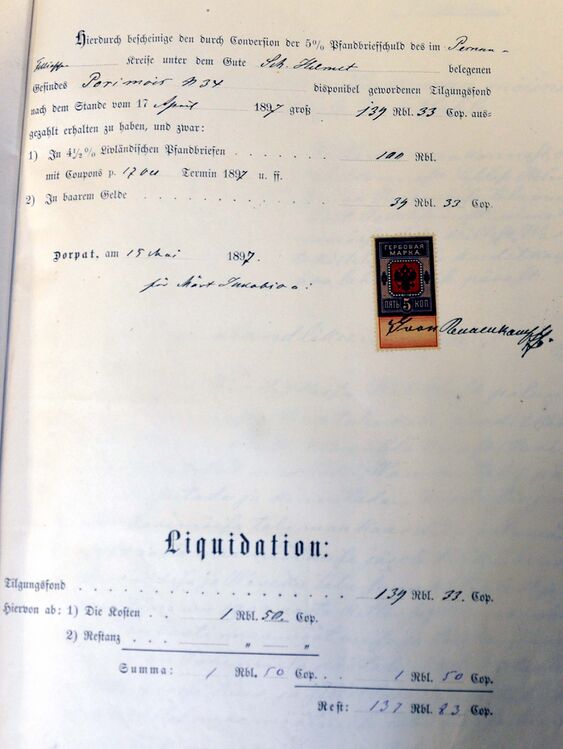 Hierdurch bescheinige den durch Conversion der 5% Pfandbriefschuld des im Pernau-
Fellinschen Kreise unter dem Gute Sch. Helmet belegenen
Gesindes Porimois N 34 disponibel gewordenen Tilgungsfond
nach dem Stande vom 17 April 1897 groß 139 Rbl. 33 Cop. aus-
gezahlt erhalten zu haben, und zwar:
1) In 4½% Livländischen Pfandbriefen . . . . . . . 100 Rbl.
mit Coupons p. 17 Oct Termin 1897 u. ff.
2) In baarem Gelde . . . . . . . . . . . . . 39 Rbl. 33 Cop.
Dorpat, am 15 Mai 1897.
ГЕРБОВАЯ
МАРКА
ПЯТЬ 5 КОП
für Märt
Liquidation:
Tilgungsfond . . . . . . . . . . . . . . . . . 139 Rbl. 33 Cop.
Hiervon ab: 1) Die Kosten . . 1 Rbl. 50. Cop.
2) Restanz . . . . " "
Summa: 1 Rbl. 50 Cop. . . 1 Rbl. 50 Cop.
Rest: 137 Rbl. 83 Cop.